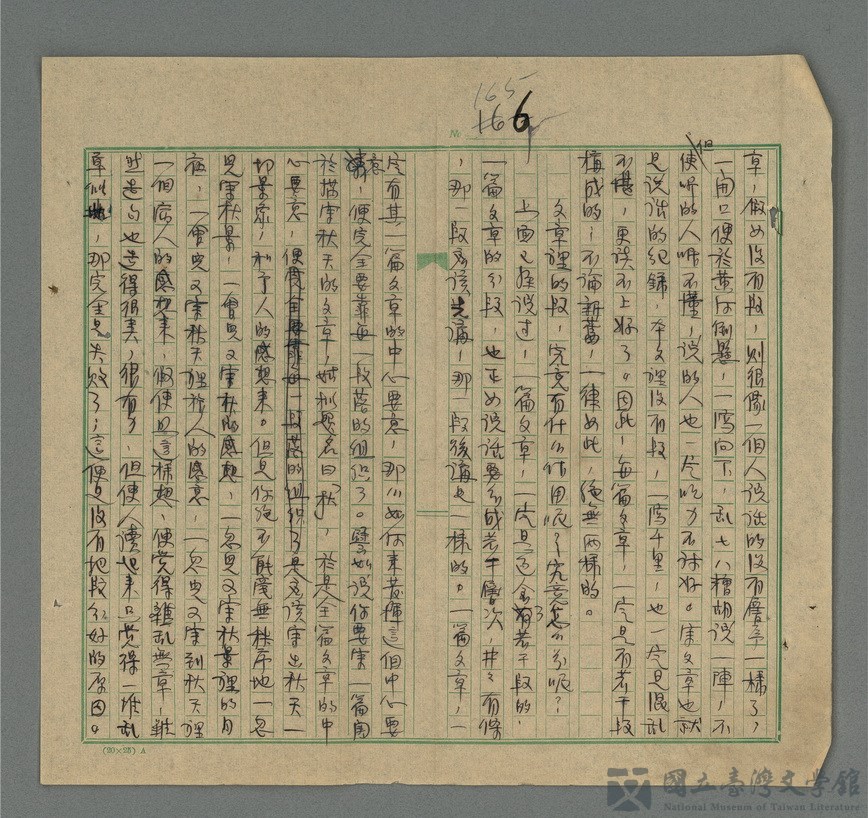 165
166
章，假如沒有段，則很像一個人說話的沒有層章一樣了，
一開口便於黃河倒懸，一瀉向下，亂七八糟胡說一陣，不
但使听的人听不懂，說的人也一定吃力不討好。寫文章也就
是說話的紀錄，本文裡沒有段，一瀉千里，也一定是混亂
不堪，更談不上好了。因此，每篇文章，一定是有若干段
構成的，不論新舊，一律如此，絕無兩樣的。
文章裡的段，究竟有什么作用呢？究竟怎么分呢？
上面已經說过，一篇文章，一定是包含有若干段的，
一篇文章的分段，也正如說話要分成若干層次，井井有條
，那一段應該先講，那一段後講是一樣的。一篇文章，一
定有其一篇文章的中心要意，那么如何來發揮這個中心要
意，便完全要靠每一段落的組织了。譬如說你要寫一篇關
於描寫秋天的文章，姑拟題名曰「秋」，於是全篇文章的中
心要意，便完全要靠每一段落的組织了是應該寫出秋天一
切景象，和予人的感想來。但是你絕不能毫無秩序地一忽
兒寫秋景，一會兒又寫秋的感想，一忽兒又寫秋景裡的月
夜，一會兒又寫秋天裡旅人的感意，一忽兒又寫到秋天裡
一個病人的感想來，假使照這樣想，便覺得雜乱無章，雖
然造句也造得很美，很有力，但使人讀起來只覺得一堆乱
草似地，那完全是失敗了；這便是沒有把段分好的原因。
(20×25) A
國立臺灣文學館
National Museum of Taiwan Literature